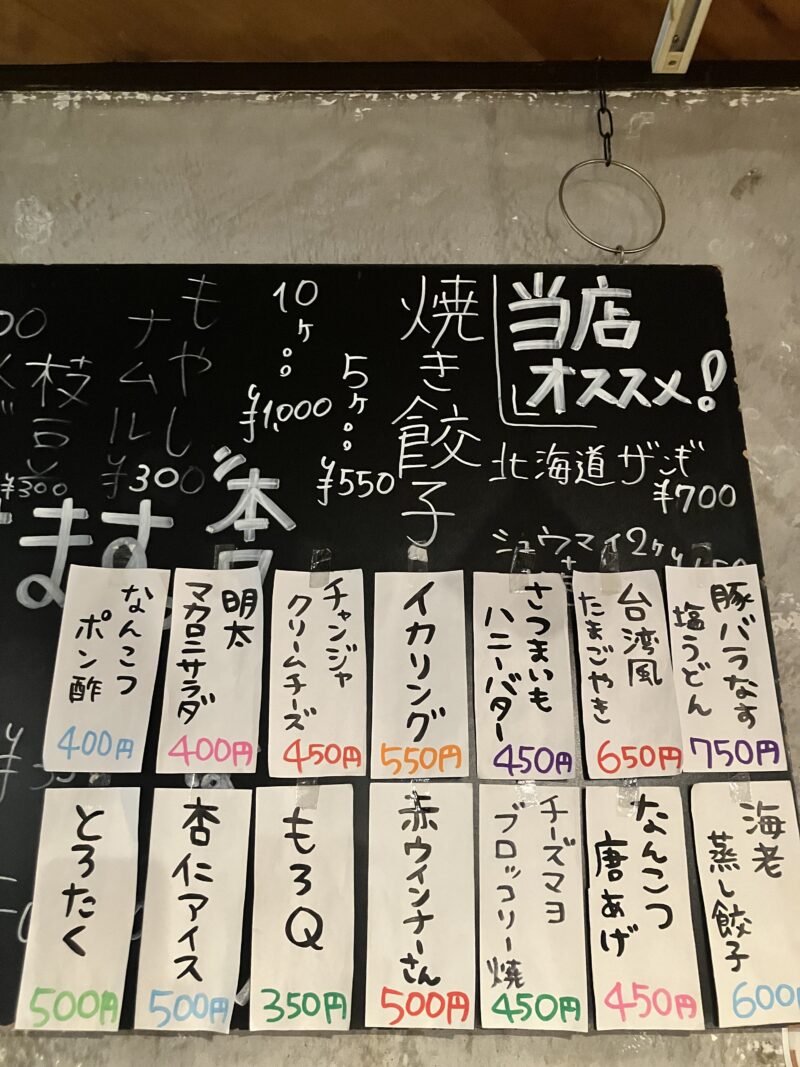 当店
オススメ!
北海道ザンギ
¥700
シュウマイ2ヶ
焼き餃子
5ヶ
¥550
10ヶ
¥1,000
もやし
ナムル
¥300
枝豆
¥300
ます
本日
豚バラなす
塩うどん
750円
台湾風
たまごやき
650円
さつまいも
ハニーバター
450円
イカリング
550円
チャンジャ
クリームチーズ
450円
明太
マカロニサラダ
400円
なんこつ
ポン酢
400円
海老
蒸し餃子
600
なんこつ
唐あげ
450円
チーズマヨ
ブロッコリー焼
450円
赤ウィンナーさん
500円
もろQ
350円
杏仁アイス
500円
とろたく
500円